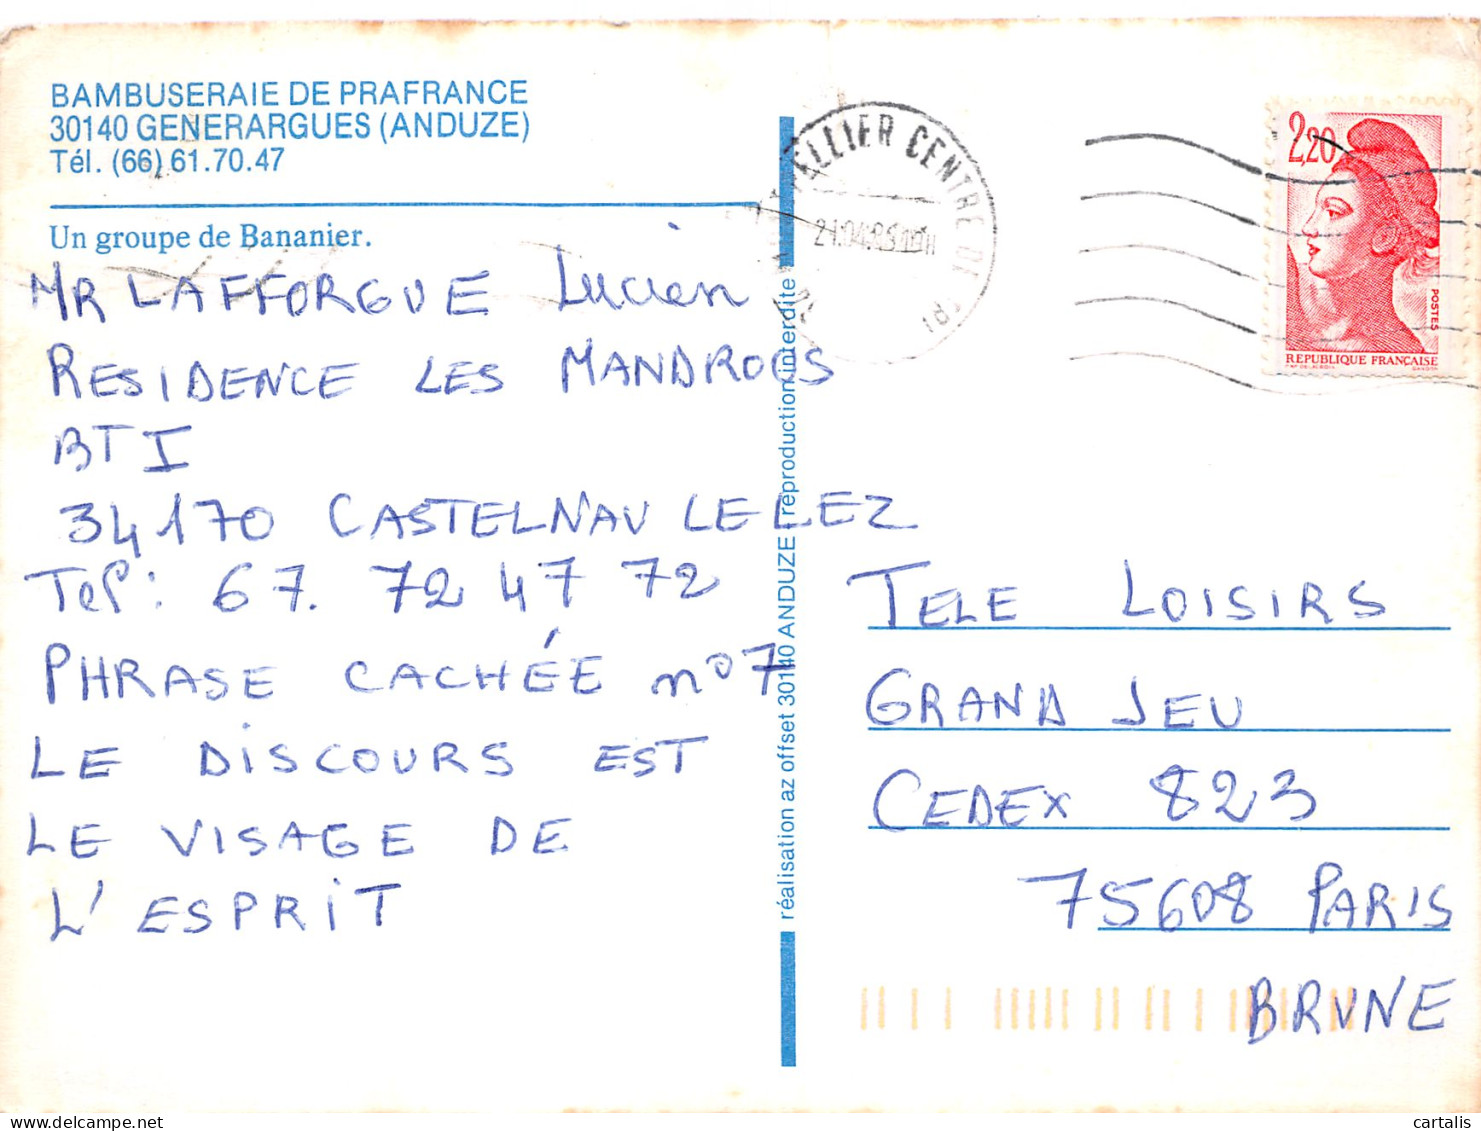 BAMBUSERAIE DE PRAFRANCE
30140 GENERARGUES (ANDUZE)
Tél. (66) 61.70.47
Un groupe de Bananier.
MR LAFFORGUE Lucien
RESIDENCE LES MANDROUS
BT I
34170 CASTELNAU LE LEZ
Tel: 67. 72 47 72
PHRASE CACHÉE n°7
LE DISCOURS EST
LE VISAGE DE
L' ESPRIT
réalisation az offset 30140 ANDUZE reproduction interdite
CENTRE
2,20
POSTES
REPUBLIQUE FRANÇAISE
TELE LOISIRS
GRAND JEU
CEDEX 823
75608 PARIS
BRUNE
cartalis